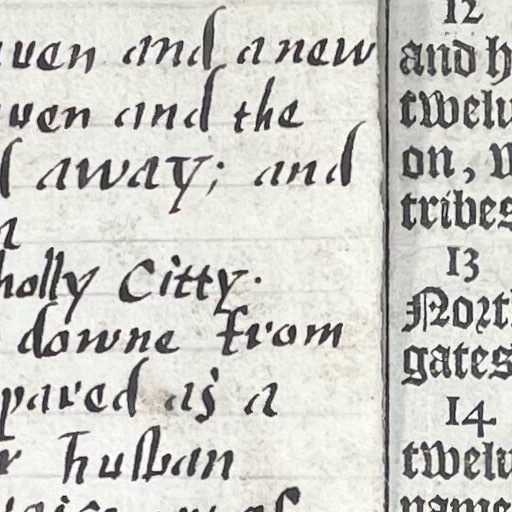 and a new
and the
away; and
holly Citty.
downe from
pared as a
husban
12
and h
twelv
on, w
tribes
13
North
gates
14
twelv
name